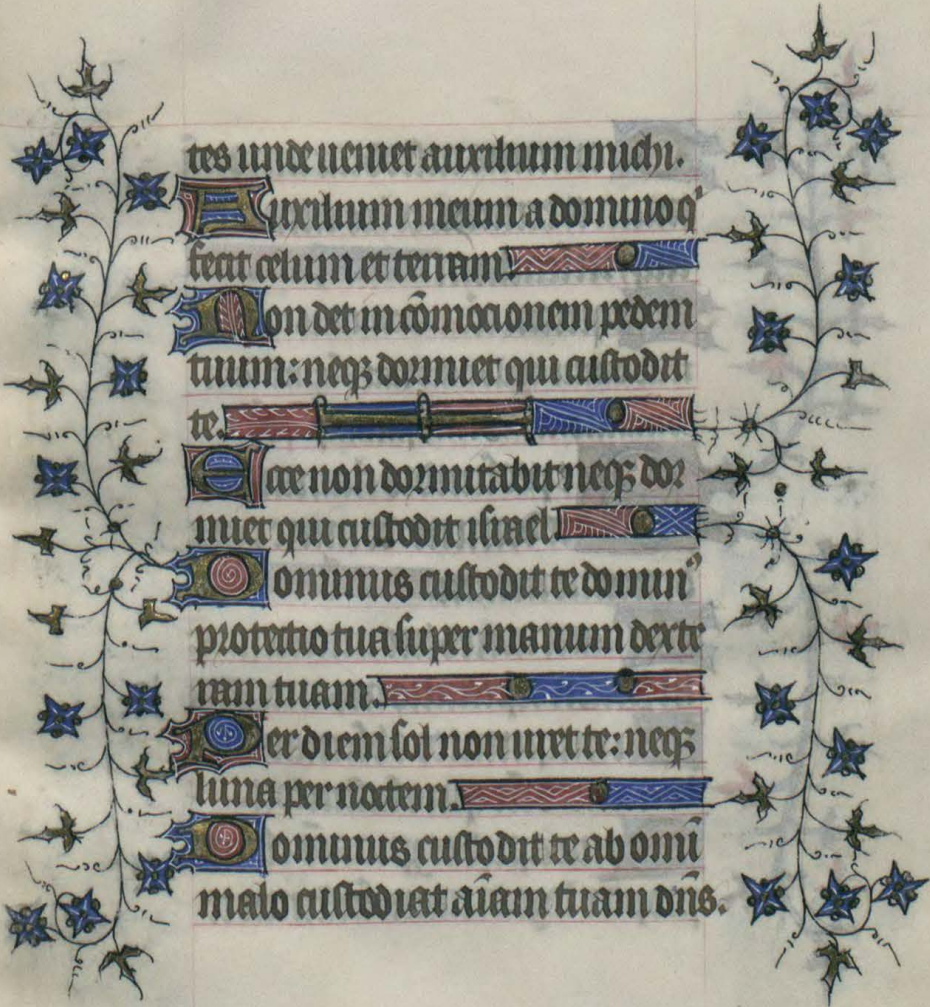 tes unde ueniet auxilium michi.
Auxilium meum a domino qͥ
fecit celum et terram.
Non det in cõmocionem pedem
tuum: neqꝫ dormiet qui custodit
te.
Ecce non dormitabit neqꝫ dor
miet qui custodit israel.
Dominus custodit te dominꝰ
protectio tua super manum dexte
ram tuam.
Per diem sol non uret te: neqꝫ
luna per noctem.
Dominus custodit te ab omĩ
malo custodiat aĩam tuam dñs.